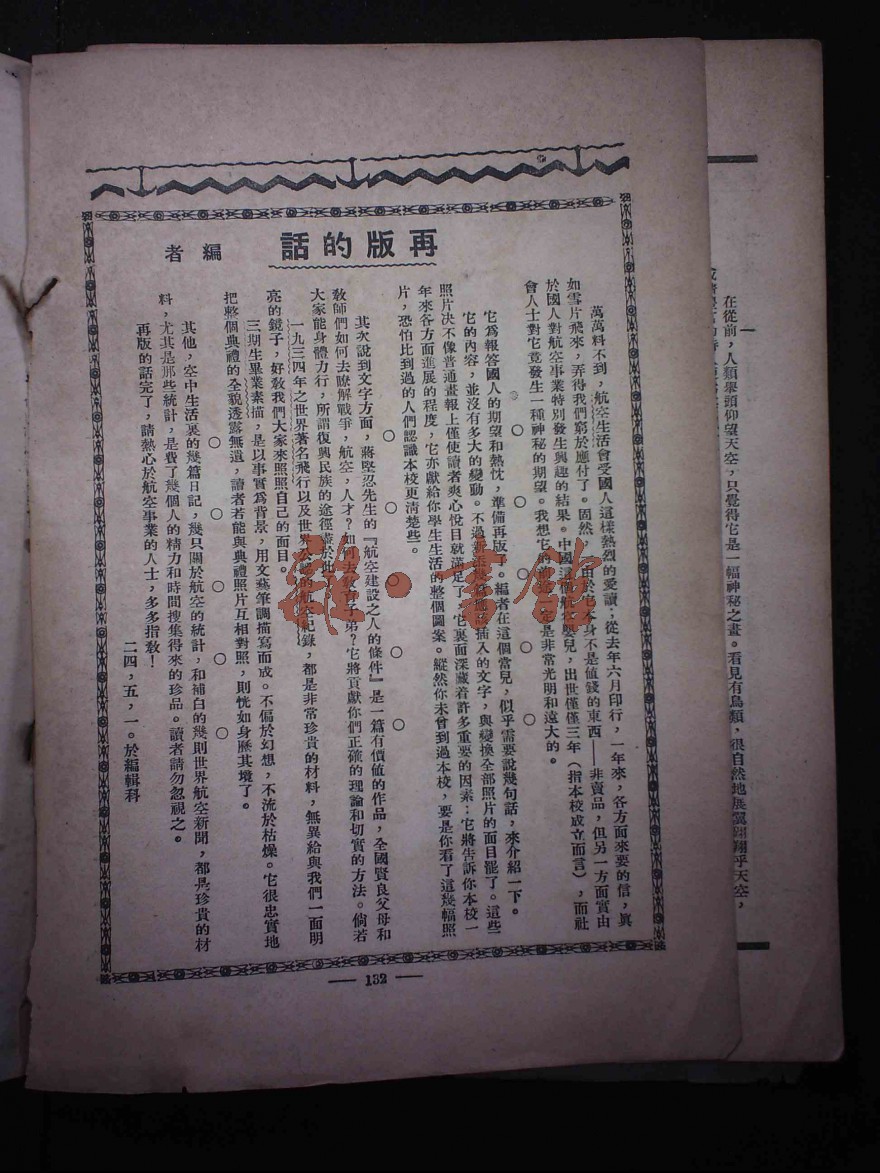 再版的話
編者
萬萬料不到，航空生活會受國人這樣熱烈的愛讀；從去年六月印行，一年來，各方面來要的信，眞
如雪片飛來，弄得我們窮於應付了。固然，由於它本身不是値錢的東西——非賣品，但另一方面實由
於國人對航空事業特別發生興趣的結果。中國這個航空嬰兒，出世僅僅三年（指本校成立而言），而社
會人士對它竟發生一種神秘的期望。我想它的前途，定是非常光明和遠大的。
○ ○ ○ ○ ○
它爲報答國人的期望和熱忱，準備再版了。編者在這個當兒，似乎需要說幾句話，來介紹一下。
它的內容，並沒有多大的變動。不過插入的文字，與變換全部照片的面目罷了。這些
照片決不像普通畫報上僅使讀者爽心悅目就滿足了，它裏面深藏着許多重要的因素：它將告訴你本校一
年來各方面進展的程度，它亦獻給你學生生活的整個圖案。縱然你未曾到過本校，要是你看了這幾幅照
片，恐怕比到過的人們認識本校更淸楚些。
○ ○ ○ ○ ○
其次說到文字方面，蔣堅忍先生的『航空建設之人的條件』是一篇有價値的作品，全國賢良父母和
敎師們如何去瞭解戰爭，航空，人才？如何去敎育子弟？它將貢獻你們正確的理論和切實的方法。倘若
大家能身體力行，所謂復興民族的途徑盡於此了。
一九三四年之世界著名飛行以及世界公認的航空紀錄，都是非常珍貴的材料，無異給與我們一面明
亮的鏡子，好敎我們大家來照照自己的面目。
三期生畢業素描，是以事實爲背景，用文藝筆調描寫而成。不偏於幻想，不流於枯燥。它很忠實地
把整個典禮的全貌透露無遺，讀者若能與典禮照片互相對照，則恍如身歷其境了。
○ ○ ○ ○ ○
其他，空中生活裏的幾篇日記，幾只關於航空的統計，和補白的幾則世界航空新聞，都是珍貴的材
料，尤其是那些統計，是費了幾個人的精力和時間搜集得來的珍品。讀者請勿忽視之。
再版的話完了，請熱心於航空事業的人士，多多指敎！
二四，五，一。於編輯科
— 132 —
一
在從前，人類舉頭仰望天空，只覺得它是一幅神秘之畫。看見有鳥類，很自然地展翼翺翔乎天空，
雜·書館